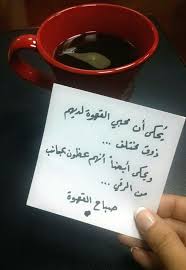 يُحكى أن محبي القهوة لديهم
ذوق مختلف ...
ويحكى أيضاً أنهم عظيمون بجانب
من الرقي ...
صباح القهوة